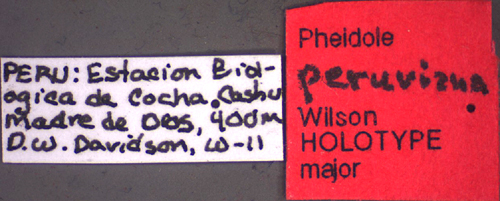 PERU: Estacion Biol-
ogica de Cocha Cashu
Madre de Dios, 400m
D.W. Davidson, W-11
Pheidole
peruviana
Wilson
HOLOTYPE
major